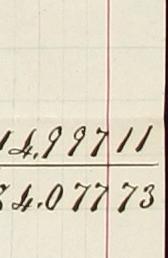 14,997 11
34.077 73